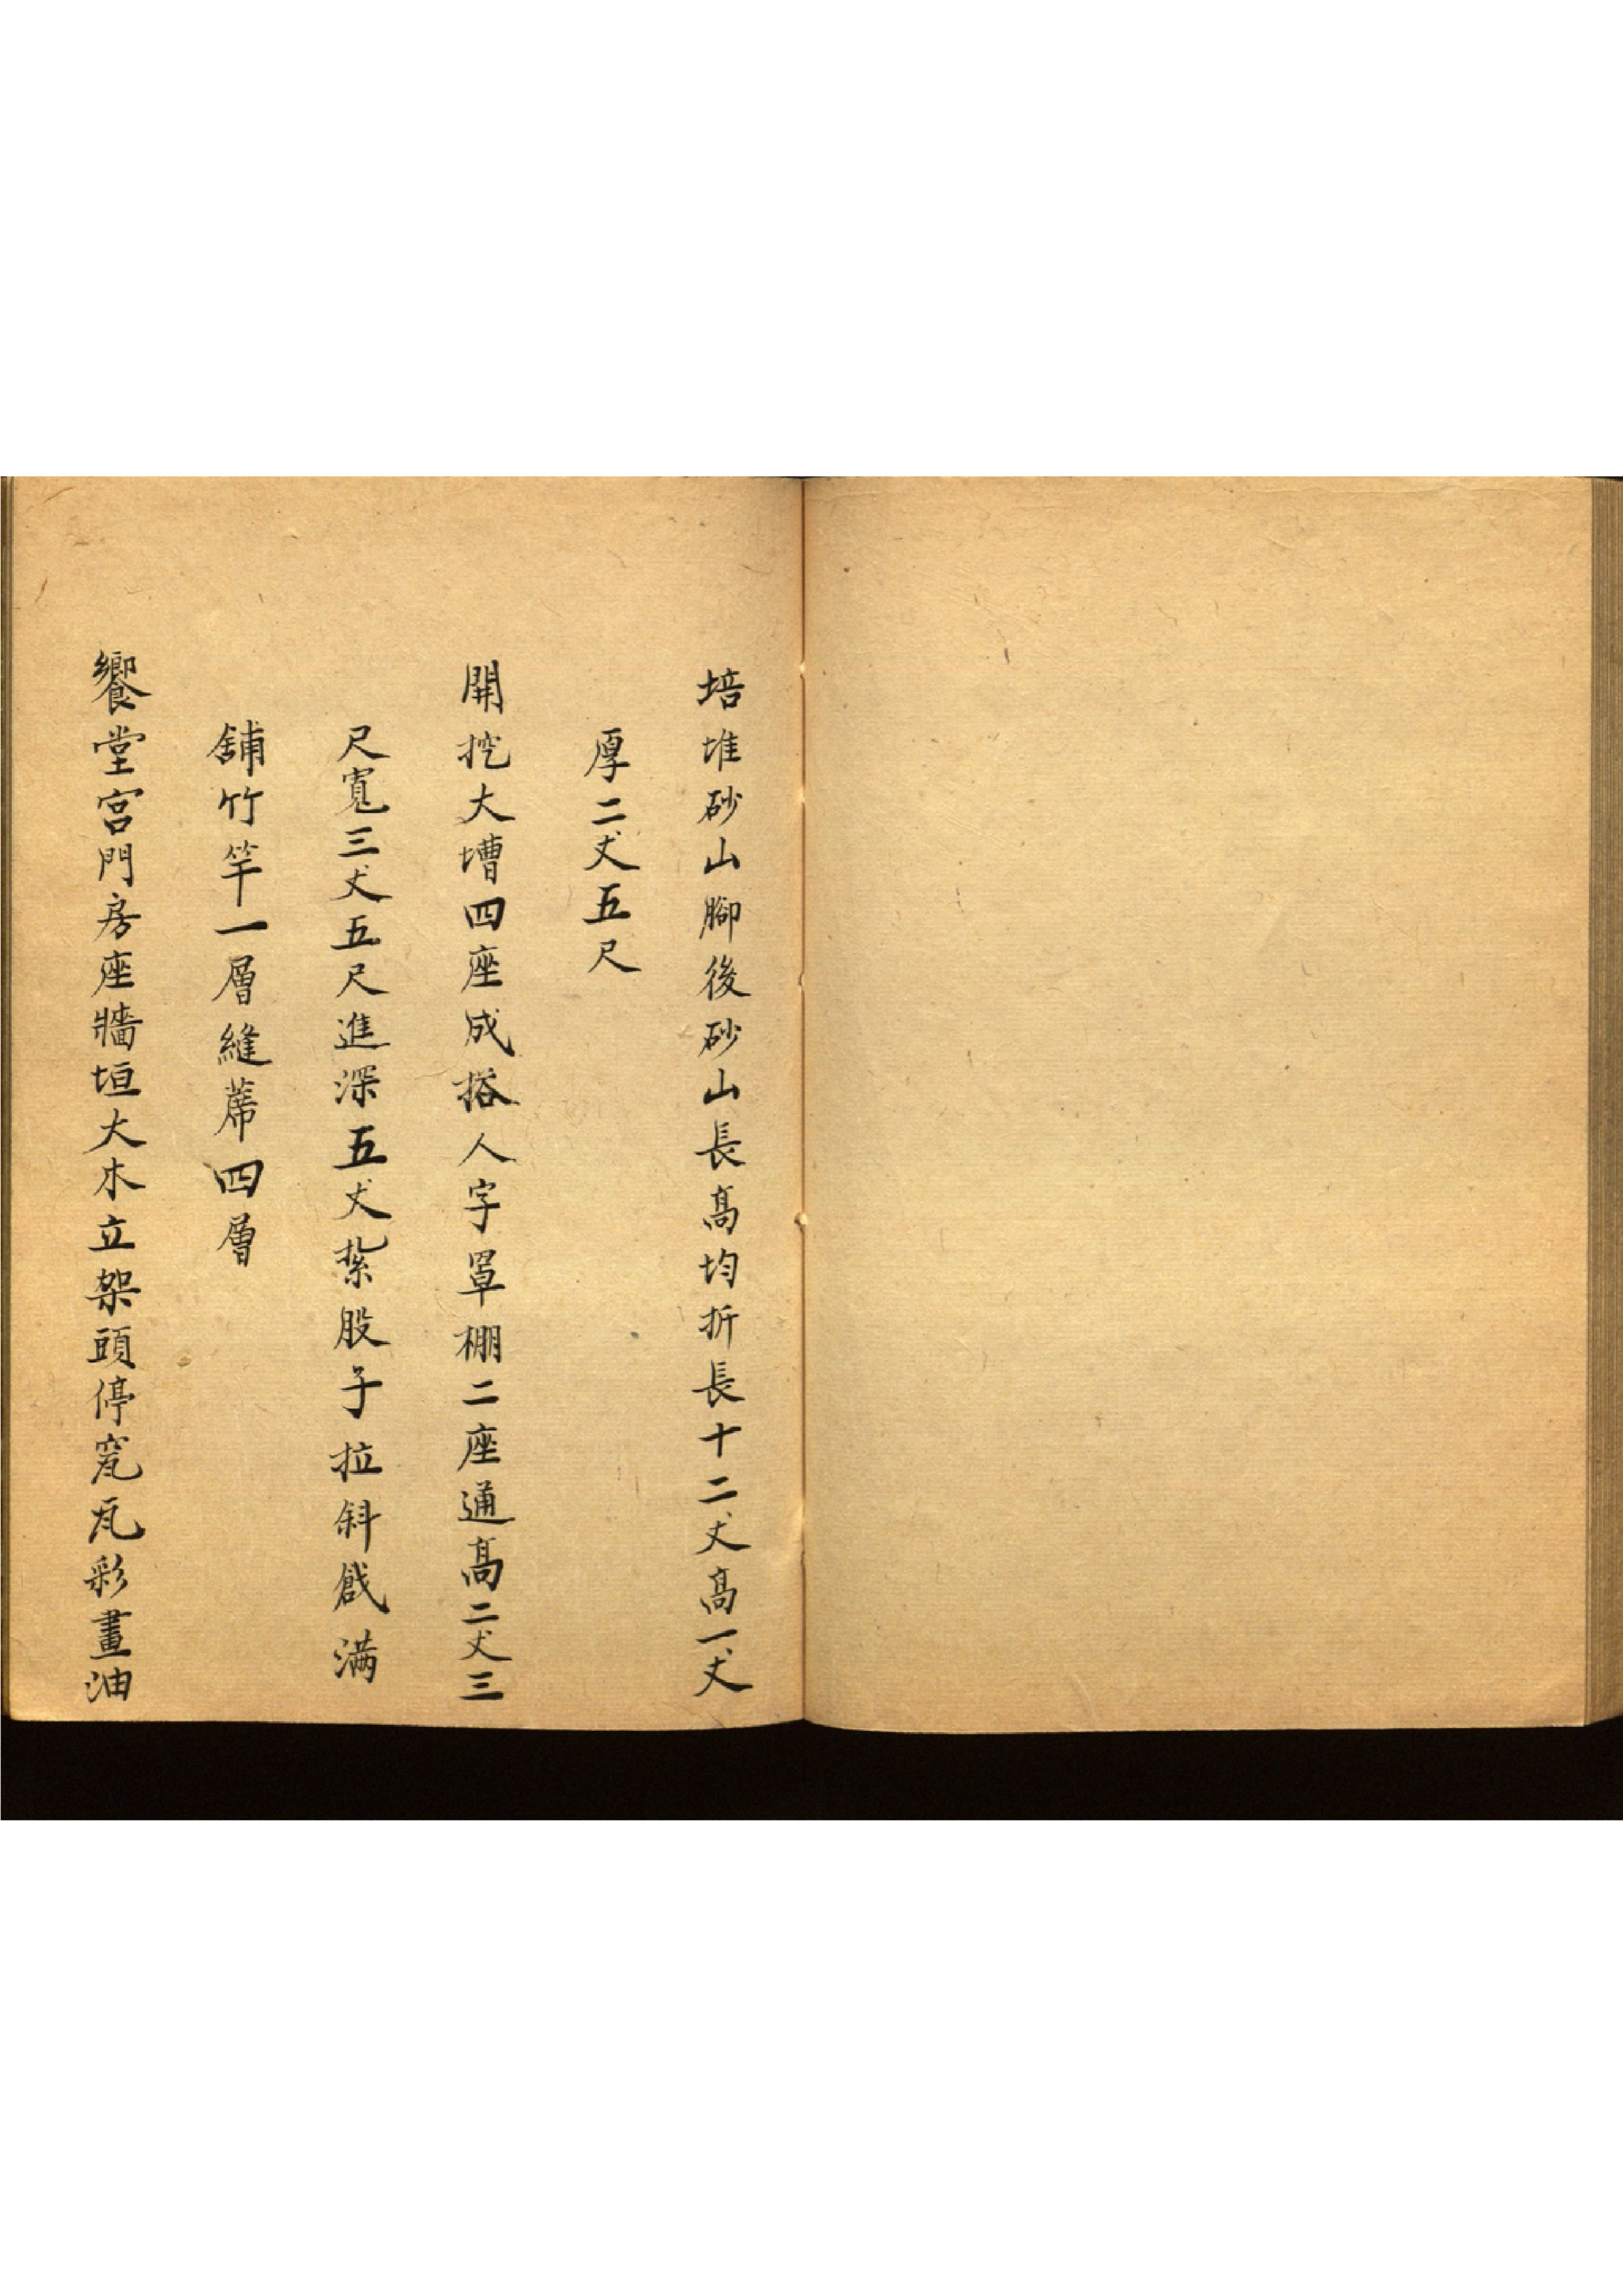 培堆砂山腳後砂山長高均折長十二丈高一丈
厚二丈五尺
開挖大墻四座成搭人字罩棚二座通高二丈三
尺寬三丈五尺進深五丈紮股子拉斜戧満
舖竹竿一層縫蓆四層
饗堂宮門房座牆垣大木立架頭停窊瓦彩畫油